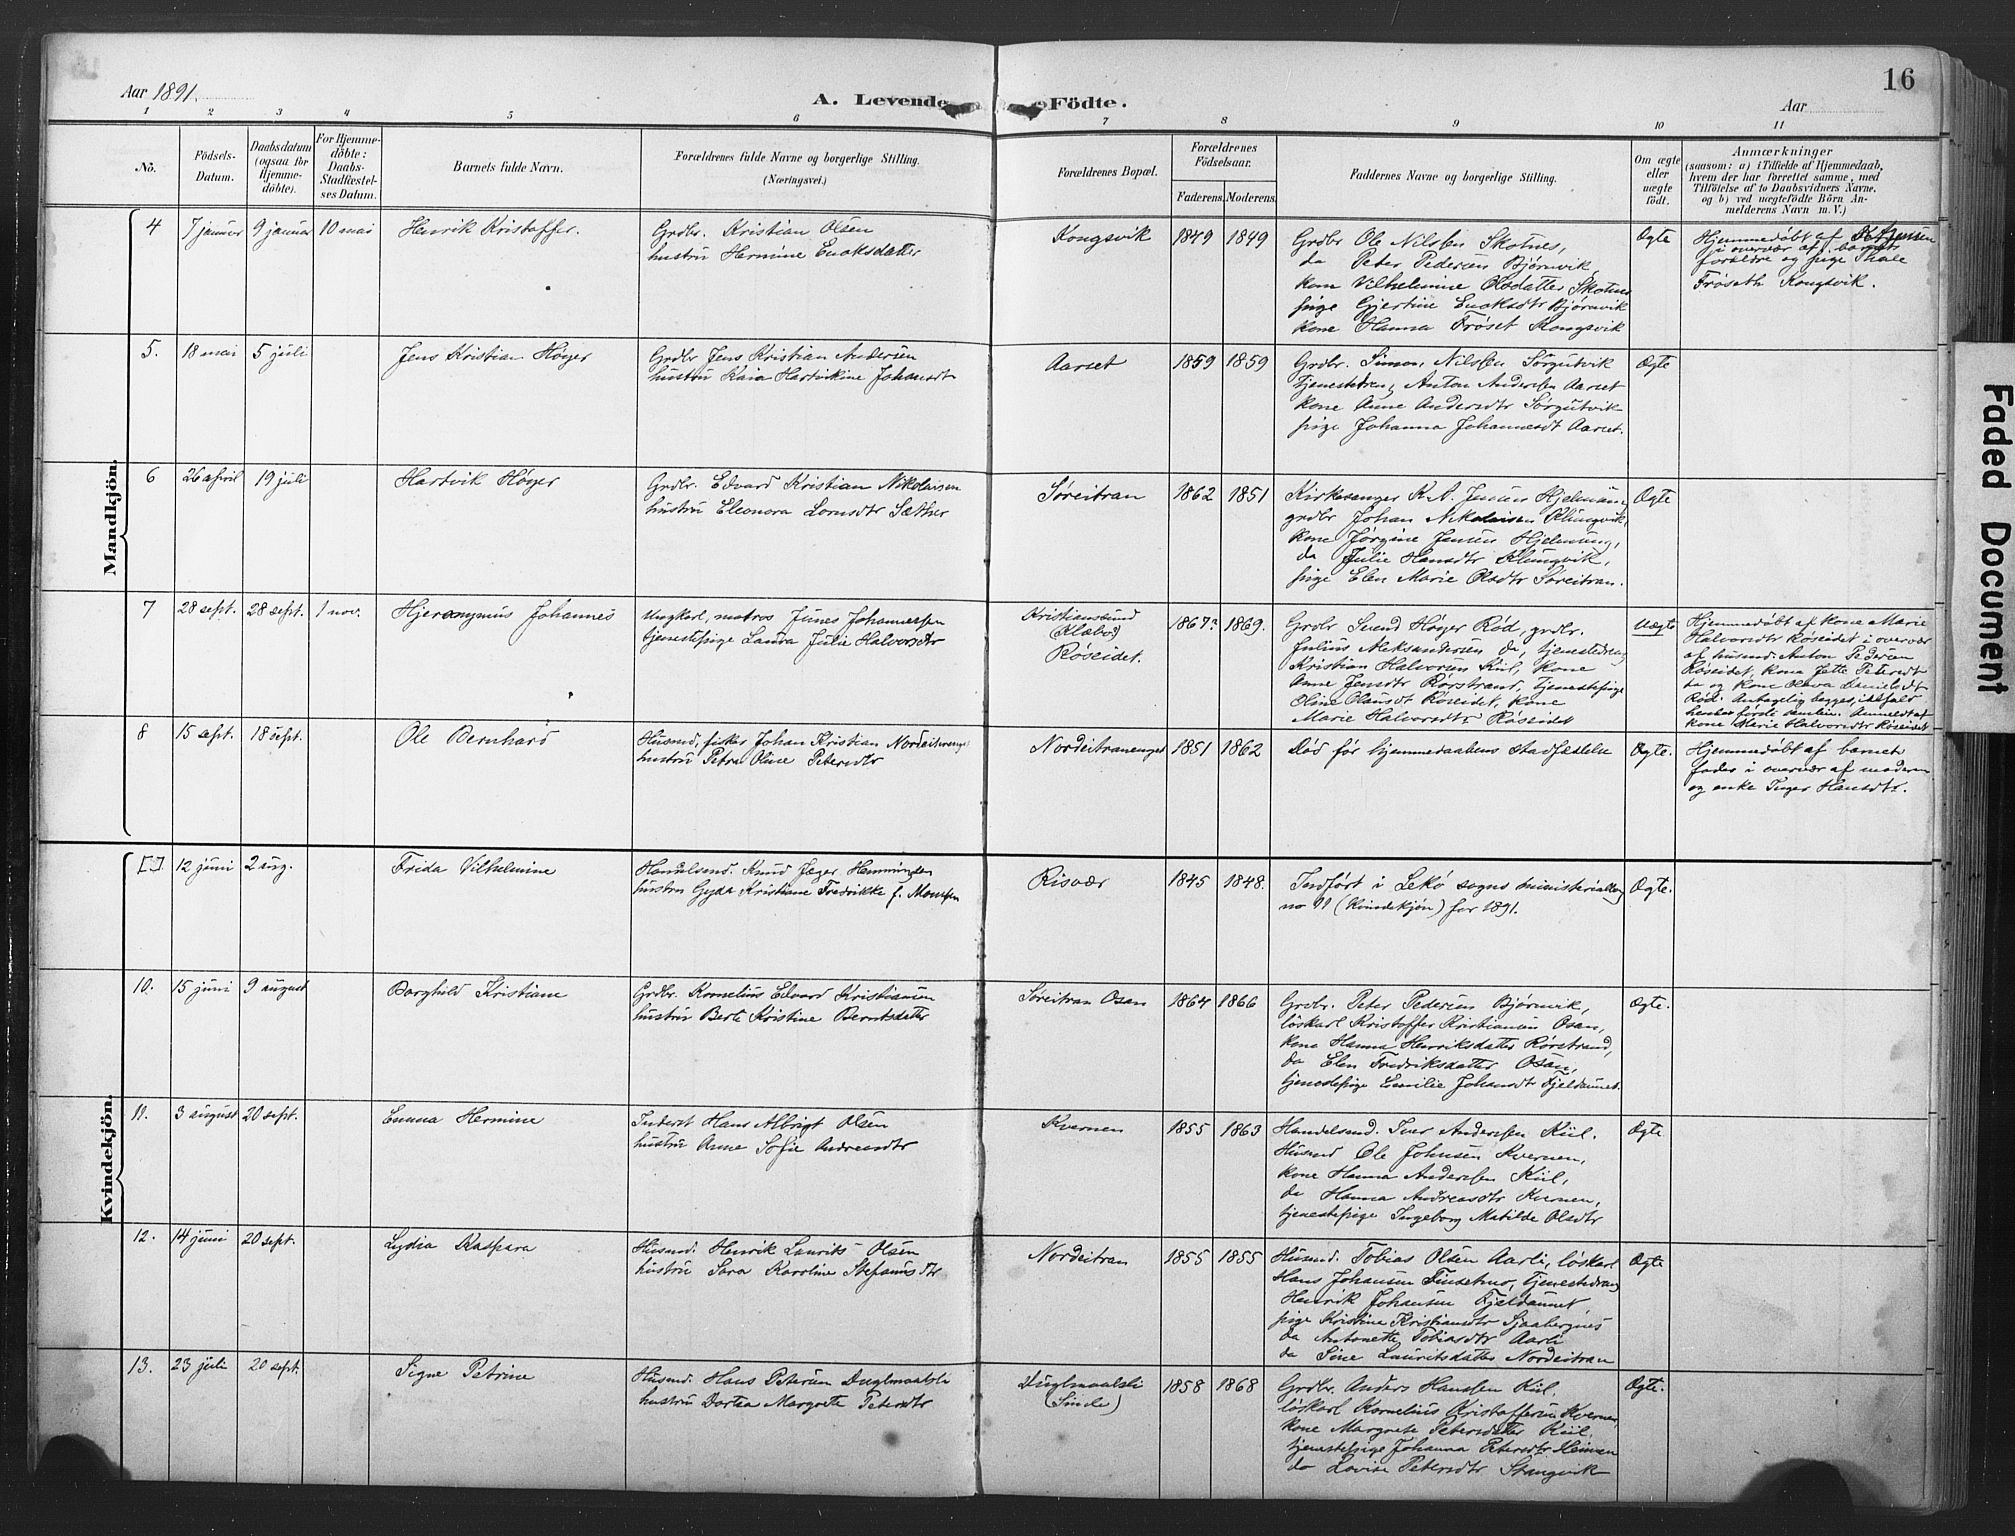 16
Aar 1891.
A. Levende Födte.
Aar
1 2 3 4 5 6 7 8 9 10 11
No.
Födsels-
Datum.
Daabsdatum
(ogsaa for
Hjemme-
döbte).
For Hjemme-
döbte:
Daabs-
Stadfæstel-
ses Datum.
Barnets fulde Navn.
Forældrenes fulde Navne og borgerlige Stilling.
(Næringsvei.)
Forældrenes Bopæl.
Forældrenes
Födselsaar.
Faderens. Moderens.
Faddernes Navne og borgerlige Stilling.
Om ægte
eller
uægte
födt.
Anmærkninger
(saasom: a) i Tilfælde af Hjemmedaab,
hvem der har forrettet samme, med
Tilföielse af to Daabsvidners Navne.
og b) ved uægtefödte Börn An-
melderens Navn m. V.)
Mandkjön.
4 7 januar 9 januar 10 mai Henrik Kristoffer.
Grdbr. Kristian Olsen
hustru Hermine Enoksdatter
Kongsvik 1849 1849
Grdbr Ole Nilsen Skotnes,
do Peter Pedersen Bjørnvik
kone Vilhelmine Olsdatter Skotnes
pige Gjertine Enoksdtr Bjørnvik
kone Hanna Frøset Kongsvik
Ægte
Hjemmedøbt af
i overvær af barnets
forældre og pige Thale
Frøseth Kongsvik.
5. 18 mai 5 juli Jens Kristian Høyer
Grdbr Jens Kristian Andersen
hustru Kaia Hartvikine Johansdtr
Aarset 1859 1859
Grdbr. Simon Nilsen Sørgutvik
tjenestedreng Anton Andersen Aarset
kone Anne Andersdtr Sørgutvik
pige Johanna Johannesdt Aarset.
Ægte
6 26 april 19 juli Hartvik Høyer
Grdbr. Edvard Kristian Nikolaisen
hustru Eleonora Lornsdtr Sæther
Søreitran 1862 1851
Kirkesanger K. A. Jensen Hjelmseng
grdbr Johan Nikolaisen Klungvik,
kone Jørgine Jensen Hjelmseng,
do Julie Hansdtr Klungvik,
pige Elen Marie Olsdtr Søreitran.
Ægte
7 28 sept. 28 sept. 1 nov. Hjeronymus Johannes
Ungkarl, matros Junes Johannessen
tjenestepige Landa Julie Halvorsdtr
Kristiansund
(Klæbo?)
Røseidet.
1867? 1869.
Grdbr Svend Høyer Rød, grdbr.
Julius Aleksandersen do, tjenestedreng
Kristian Halvorsen Kiil, kone
Anne Jensdtr Rørstrand, tjenestepige
Oline Olausdt Røseidet, kone
Marie Halvorsdtr Røseidet
Uægte
Hjemmedøbt af kone Marie
Halvorsdtr Røseidet i overvær
af husmd. Anton Pedersen
Røseidet, kona Jette Petersdt
do og kone Olava Danielsdt
Rød. Angivelig begges, ialtfald
hendes første samleie. Anmeldt af
kone Marie Halvorsdtr Røseidet
8 15 sept. 18 sept. Ole Bernhard
Husmd, fisker Johan Kristian Nordeitraneng
hustru Petra Oline Petersdtr
Nordeitranenget 1851 1862
Død før hjemmedaabens stadfæstelse
Ægte.
Hjemmedøbt af barnets
fader i overvær af moderen
og enke Inger Hansdtr.
Kvindekjön.
[ ] 12 juni 2 aug. Frida Vilhelmine
Handelsmd. Knud Jæger Hemmingsen
hustru Gyda Kristiane Fredrikke f. Monsen
Risvær 1845 1848.
Indført i Lekø sogns ministerialbog
no 11 (Kvindekjøn) for 1891.
Ægte.
10. 15 juni 9 august Borghild Kristiane
Grdbr. Kornelius Edvard Kristiansen
hustru Berte Kristine Berntsdatter
Søreitran Osan 1864 1866
Grdbr. Peter Pedersen Bjørnvik,
løskarl Kristoffer Kristiansen Osan,
kone Hanna Henriksdatter Rørstrand,
do Elen Fredriksdatter Osan,
tjenestepige Emilie Johansdt Fjeldaunet.
Ægte.
11. 3 august 20 sept. Emma Hermine
Inderst Hans Albrigt Olsen
hustru Anne Sofie Andreasdtr
Kvernen 1855 1863
Handelsmd. Iver Andersen Kiil.
Husmd Ole Johnsen Kvernen,
kone Hanna Andersen Kiil,
do Hanna Andreasdtr Kvernen,
tjenestepige Ingeborg Matilde Olsdtr
Ægte
12. 14 juni 20 sept. Lydia Kaspara
Husmd. Henrik Laurits Olsen
hustru Sara Karoline Stefanusdtr
Nordeitran 1855 1855
Husmd. Tobias Olsen Aarli, løskarl
Hans Johansen Finsetmo, tjenestedreng
Henrik Johansen Fjeldaunet
pige Kristine Kristiansdtr Sjaabergnes
do Antonette Tobiasdtr Aarli
do Sine Lauritsdatter Nordeitran
Ægte
13. 23 juli 20 sept. Signe Petrine
Husmd. Hans Petersen Duglmaalsli
hustru Dortea Margrete Petersdtr
Duglmaalsli
(Sinde)
1858 1868
Grdbr. Anders Hansen Kiil,
løskarl Kornelius Kristoffersen Kvernen,
kone Margrete Petersdatter Kiil,
tjenestepige Johanna Petersdtr Heimen
do Lovise Petersdtr Stangvik
Ægte.
Faded Document